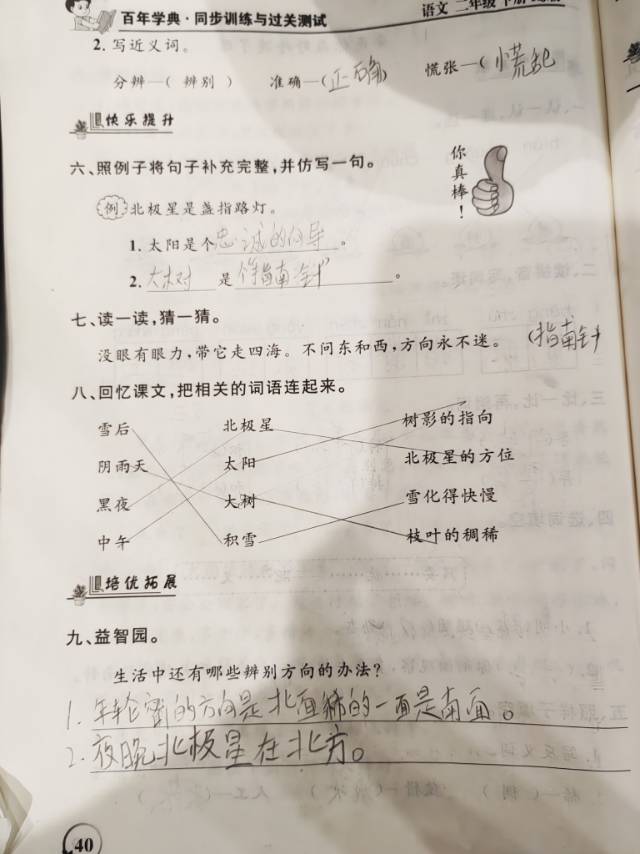 百年学典·同步训练与过关测试
语文 二年级 下册
2. 写近义词。
分辨—( 辨别 ) 准确—(正确) 慌张—(慌乱
快乐提升
六、照例子将句子补充完整,并仿写一句。
你真棒!
例 北极星是盏指路灯。
1. 太阳是个忠诚的向导。
2. 大树 是 指南针 。
七、读一读,猜一猜。
没眼有眼力,带它走四海。不问东和西,方向永不迷。 (指南针
八、回忆课文,把相关的词语连起来。
雪后 北极星 树影的指向
阴雨天 太阳 北极星的方位
黑夜 大树 雪化得快慢
中午 积雪 枝叶的稠稀
培优拓展
九、益智园。
生活中还有哪些辨别方向的办法?
1. 年轮密的方向是北面稀的一面是南面。
2. 夜晚北极星在北方。
40